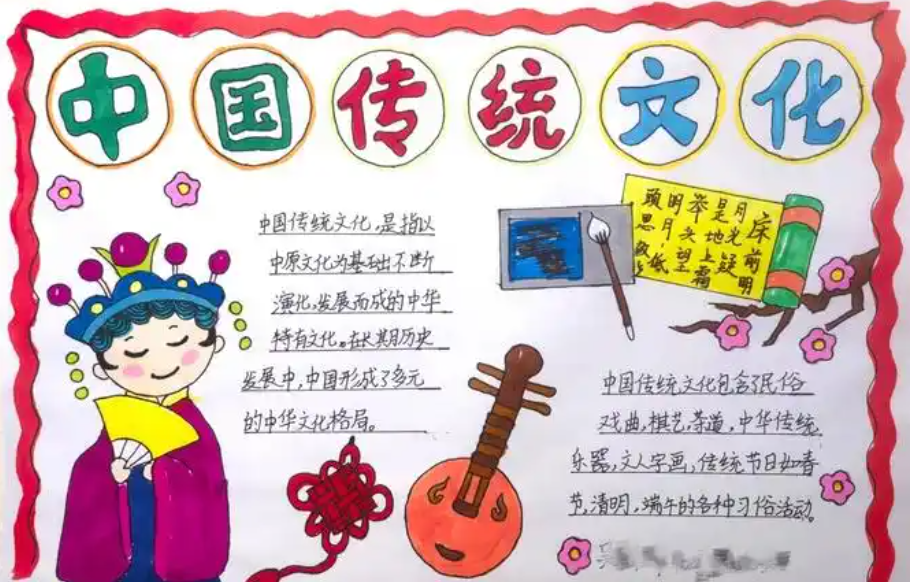 中国传统文化
中国传统文化,是指以
中原文化为基础不断
演化,发展而成的中华
特有文化。在长期历史
发展中,中国形成了多元
的中华文化格局。
床前明
月光疑
是地上霜
举头望
明月,低
頭思故
中国传统文化包含了民俗
戏曲,棋艺,茶道,中华传统
乐器,文人字画,传统节日如春
节,清明,端午的各种习俗活动。